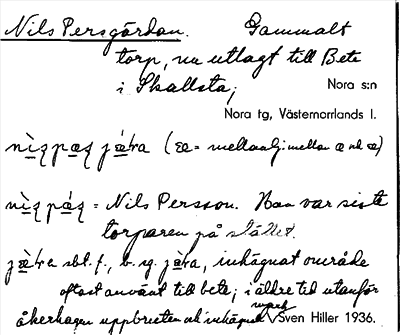 Nils Persgården. Gammalt
torp, nu utlagt till Bete
i Skallsta;
Nora s:n
Nora tg, Västernorrlands l.
(ꞓ = mellanlj: mellan æ och œ)
= Nils Persson. Han var siste
torparen på stället.
sbt. f., b. sg. inhägnat område
oftast använt till bete; i äldre tid utanför
åkerhagen uppbruten och inhägnat
Sven Hiller 1936.